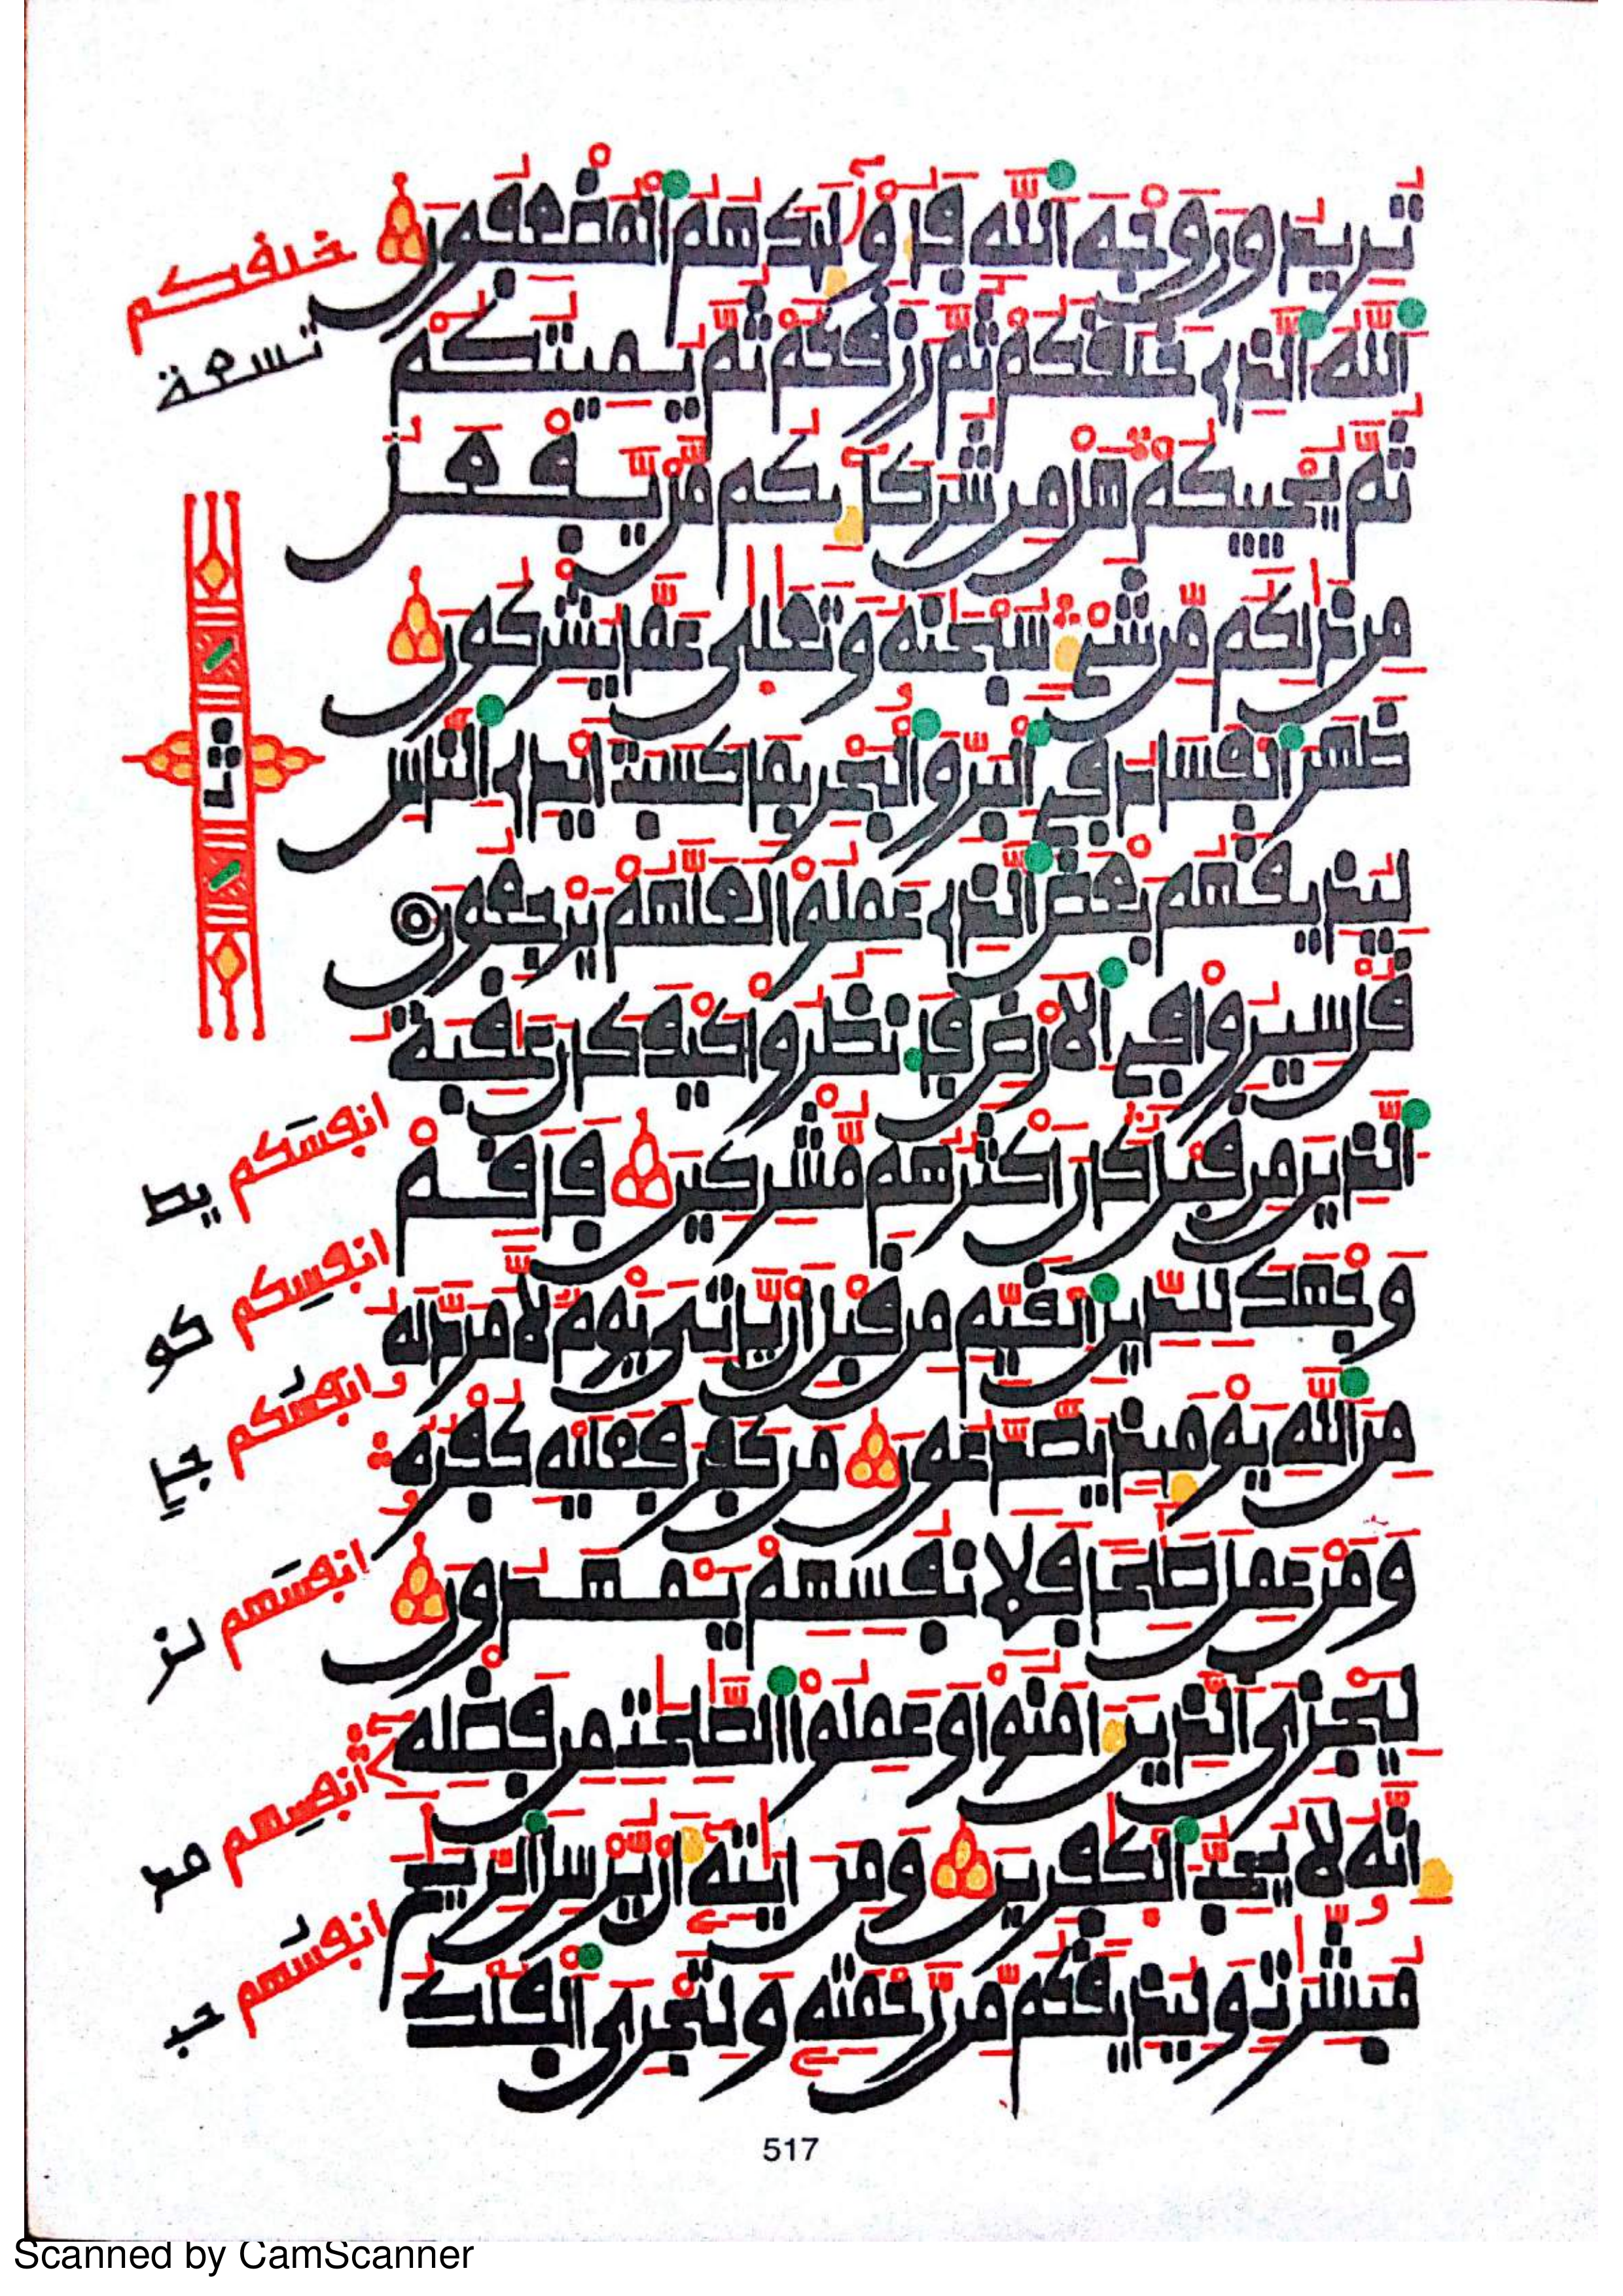 تريدون وجه الله فاولىك هم المضعفون
الله الذي خلقكم ثم رزقكم ثم يميتكم
ثم يحييكم هل من شركايكم من يفعل
من ذلكم من شيء سبحنه وتعلى عما يشركون
ظهر الفساد في البر والبحر بما كسبت ايدي الناس
ليذيقهم بعض الذي عملوا لعلهم يرجعون
قل سيروا في الارض فانظروا كيف كان عقبة
الذين من قبل كان اكثرهم مشركين فاقم
وجهك للدين القيم من قبل ان ياتي يوم لا مرد له
من الله يوميذ يصدعون من كفر فعليه كفره
ومن عمل صلحا فلانفسهم يمهدون
ليجزي الذين امنوا وعملوا الصلحت من فضله
انه لا يحب الكفرين ومن ايته ان يرسل الريح
مبشرت وليذيقكم من رحمته ولتجري الفلك
خلفكم
تسعة
ثمن
انفسكم يط
انفسكم كو
وانفسكم
انفسهم لز
انفسهم
انفسهم
517
Scanned by CamScanner